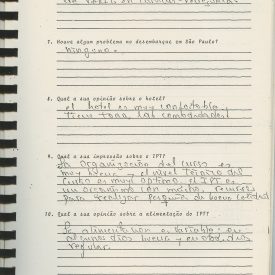 7. Houve algum problema no desembarque em São Paulo?
Ninguno.
8. Qual a sua opinião sobre o hotel?
el hotel es muy confortable
tiene todas las comodidades
9. Qual a sua impressão sobre o IPT?
La organización del curso es
muy buena y el nivel técnico del
es muy optimo. el IPT es
un organismo con muchos recursos
para realizar pesquisa de buena calidad
10. Qual a sua opinião sobre a alimentação do IPT?
La alimentación es variable en
algunos dias buena y en otros dias
regular.